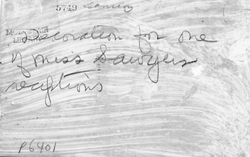 Decoration for one
of Miss Sawyers
receptions
P6401